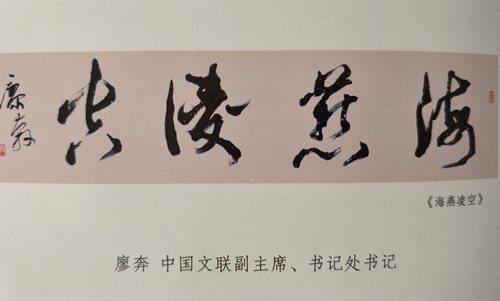 海燕凌空
《海燕凌空》
廖奔 中国文联副主席、书记处书记